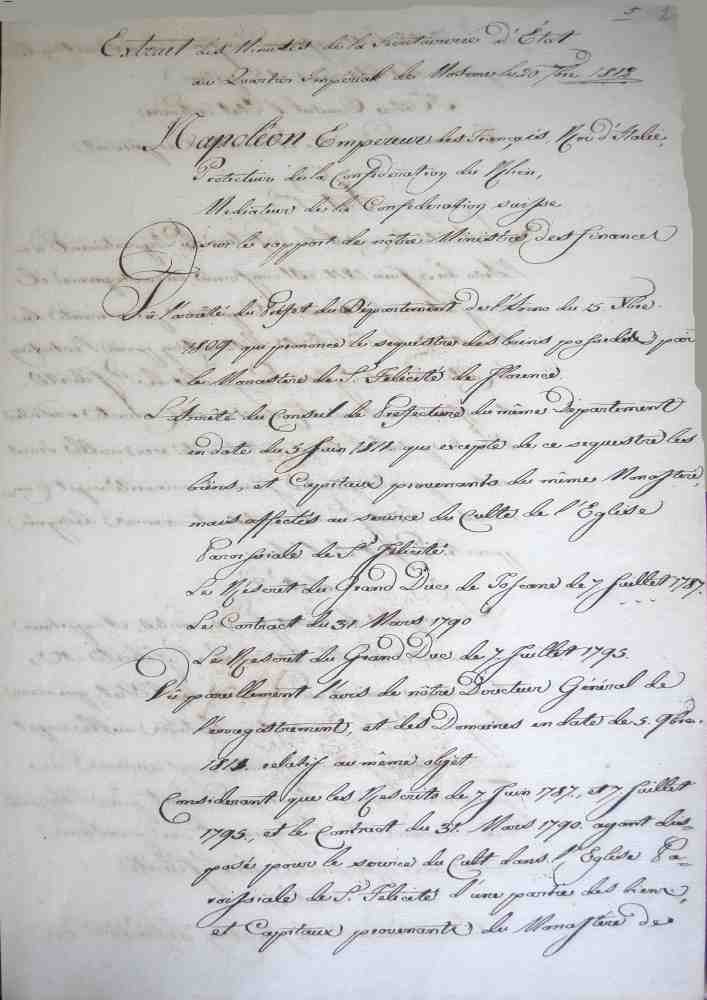 5
Extrait des Minutes de la Secretairerie d'État
au Quartier Impérial de Moscou le 20 7bre 1812
Napoléon Empereur des Français, Roi d'Italie,
Protecteur de la Confédération du Rhin,
Mediateur de la Confederation suisse
sur le rapport de nôtre Ministre des finances
Vû l'arrêté du Préfet du Département de l'Arno du 15 Xbre.
1809 qui prononce le sequestre des biens possedés par
le Monastère de St. Felicité de Florence
L'Arrêté du Conseil de Préfecture du même Département
en date du 5 Juin 1811. qui excepte de ce sequestre les
biens, et Capitaux provenants du même Monastère,
mais affectés au service du Culte de l'Eglise
Paroissiale de St. Felicité.
Le Rescrit du Grand Duc de Toscane de 7 Juillet 1787.
Le Contract du 31. Mars 1790
Le Rescrit du Grand Duc de 7. Juillet 1795.
Vû pareillement l'avis de nôtre Directeur Général de
l'enregistrement, et des Domaines en date de 5. 9bre.
1811. relatif au même objet
Considerant que les Rescrits de 7 Juin 1787., et 7 Juillet
1795., et le Contract du 31. Mars 1790. ayant dis-
posés pour le service du Cult dans l'Eglise Pa-
roissiale de St. Felicité l'une partie des biens,
et Capitaux provenants du Monastère de